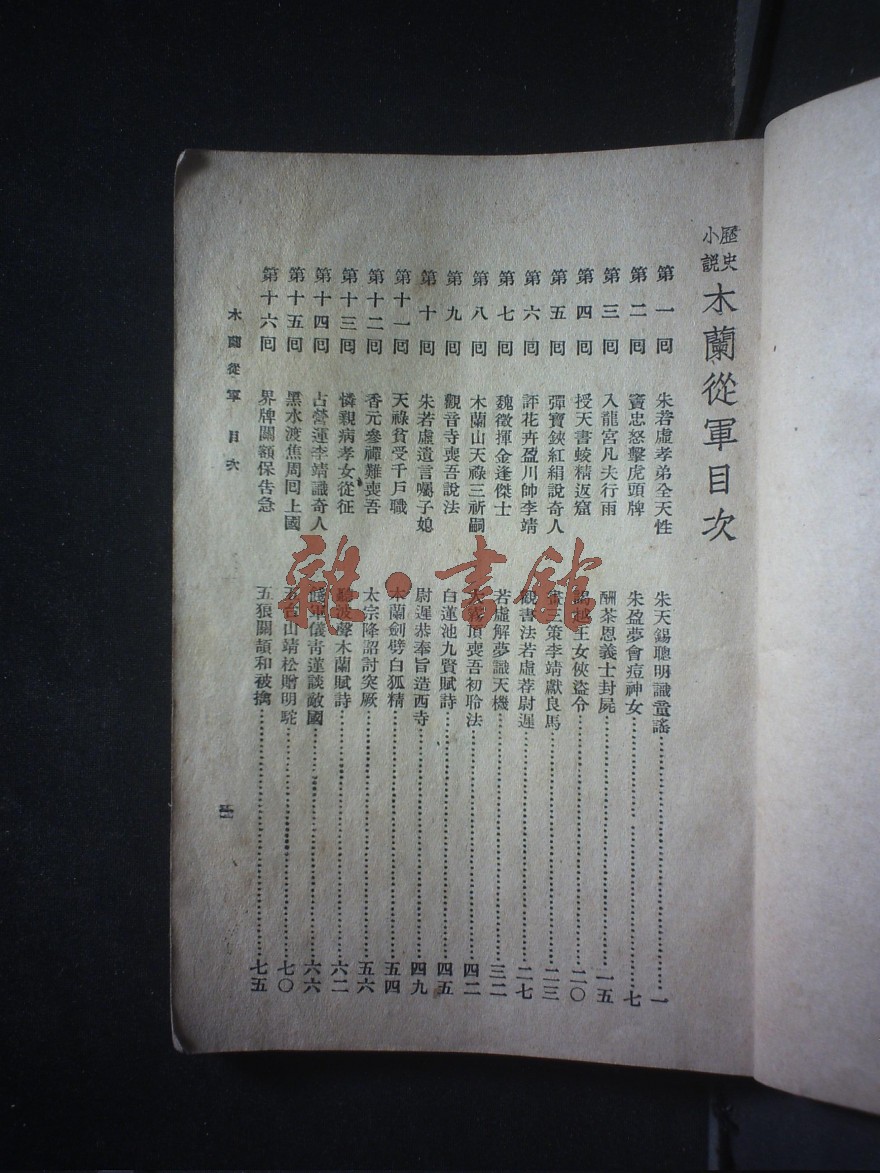 歷史小說 木蘭從軍目次
第一回 朱若虛孝弟全天性 朱天錫聰明識童謠 一
第二回 竇忠怒擊虎頭牌 朱盈夢會痘神女 七
第三回 入龍宮凡夫行雨 酬茶恩義士封屍 一五
第四回 授天書蛟精返窟 謁越王女俠盜令 二〇
第五回 彈寶鋏紅絹說奇人 三策李靖獻良馬 二三
第六回 評花卉盈川帥李靖 觀書法若虛荐尉遲 二七
第七回 魏徵揮金逢傑士 若虛解夢識天機 三二
第八回 木蘭山天祿三祈嗣 頂喪吾初聆法 四二
第九回 觀音寺喪吾說法 白蓮池九賢賦詩 四五
第十回 朱若虛遺言囑子媳 尉遲恭奉旨造西寺 四九
第十一回 天祿貧受千戶職 木蘭劍劈白狐精 五四
第十二回 香元參禪難喪吾 太宗降詔討突厥 五六
第十三回 憐親病孝女從征 聽波聲木蘭賦詩 六二
第十四回 占營運李靖識奇人 軍儀靑蓮談敵國 六六
第十五回 黑水渡焦周回上國 五台山靖松贈明駝 七〇
第十六回 界牌關額保告急 五狼關頡和被擒 七五
木蘭從軍 目次
龍·書館